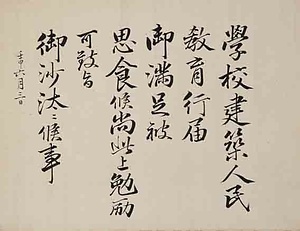 學校建築人民
教育行届
御満足被
思食候尚此上勉励
可致旨
御沙汰候事
壬申六月三日